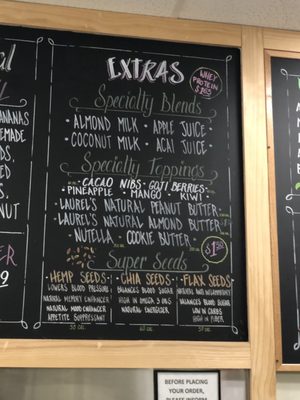 EXTRAS
WHEY
PROTEIN
Specialty Blends
• ALMOND MILK • APPLE JUICE
• COCONUT MILK • ACAI JUICE
Specialty Toppings
• CACAO NIBS • GOJI BERRIES •
PINEAPPLE • MANGO • KIWI
• LAUREL'S NATURAL PEANUT BUTTER
• LAUREL'S NATURAL ALMOND BUTTER
• NUTELLA • COOKIE BUTTER
Super Seeds
• HEMP SEEDS •
LOWERS BLOOD PRESSURE
NATURAL MEMORY ENHANCER
NATURAL MOOD ENHANCER
APPETITE SUPPRESSANT
• CHIA SEEDS •
BALANCES BLOOD SUGAR
HIGH IN OMEGA 3 OILS
NATURAL ENERGIZER
• FLAX SEEDS •
NATURAL ANTI INFLAMMATORY
BALANCES BLOOD SUGAR
LOW IN CARBS
HIGH IN FIBER
ANANAS
BEFORE PLACING
YOUR ORDER,
PLEASE INFORM